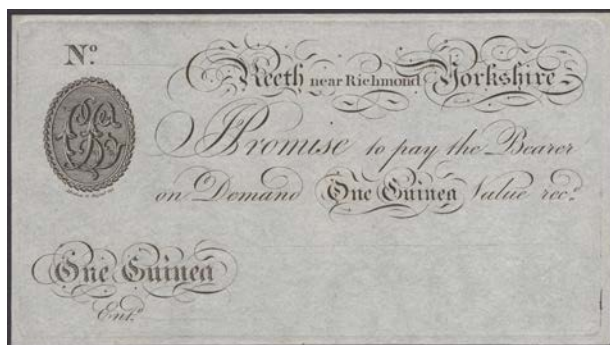 Nº
Reeth near Richmond Yorkshire
I Promise to pay the Bearer
on Demand One Guinea Value rec.d
One Guinea
Ent.d